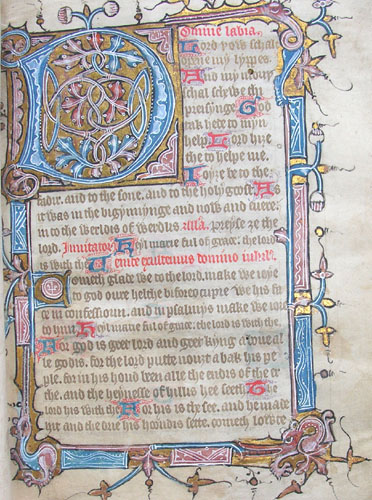 Domine labia.
Lord thow schalt
opene my lyppes
And my mouþ
schal schewe thi
preisynge. God
tak hede to myn
help. Lord hize
the to helpe me.
Ioize be to the
fadir. and to the sone. and to the holy goost. As
it was in the bigynnynge and now and euere:
in to the werldis of werldis alla. preyse ze the
lord. Inuitatory Heyl marie ful of grace. the lord
is with the. Venite exultemus domino iubil.
Cometh glade we to the lord. make we ioie
to god oure helthe bifore ocupie we his face
in confessioun. and in psalmys make we ioie
to him. Heyl marie ful of grace. the lord is with the.
For god is greet lord and greet kyng aboue alle
goddis. for the lord putte nouzt abak his pe
ple. for in his hond ben alle the endis of the er
the. and the heynesse of hillis he seeth. The
lord is with the. For his is the see. and he made
hit and the drie his hondis sette. cometh lowte